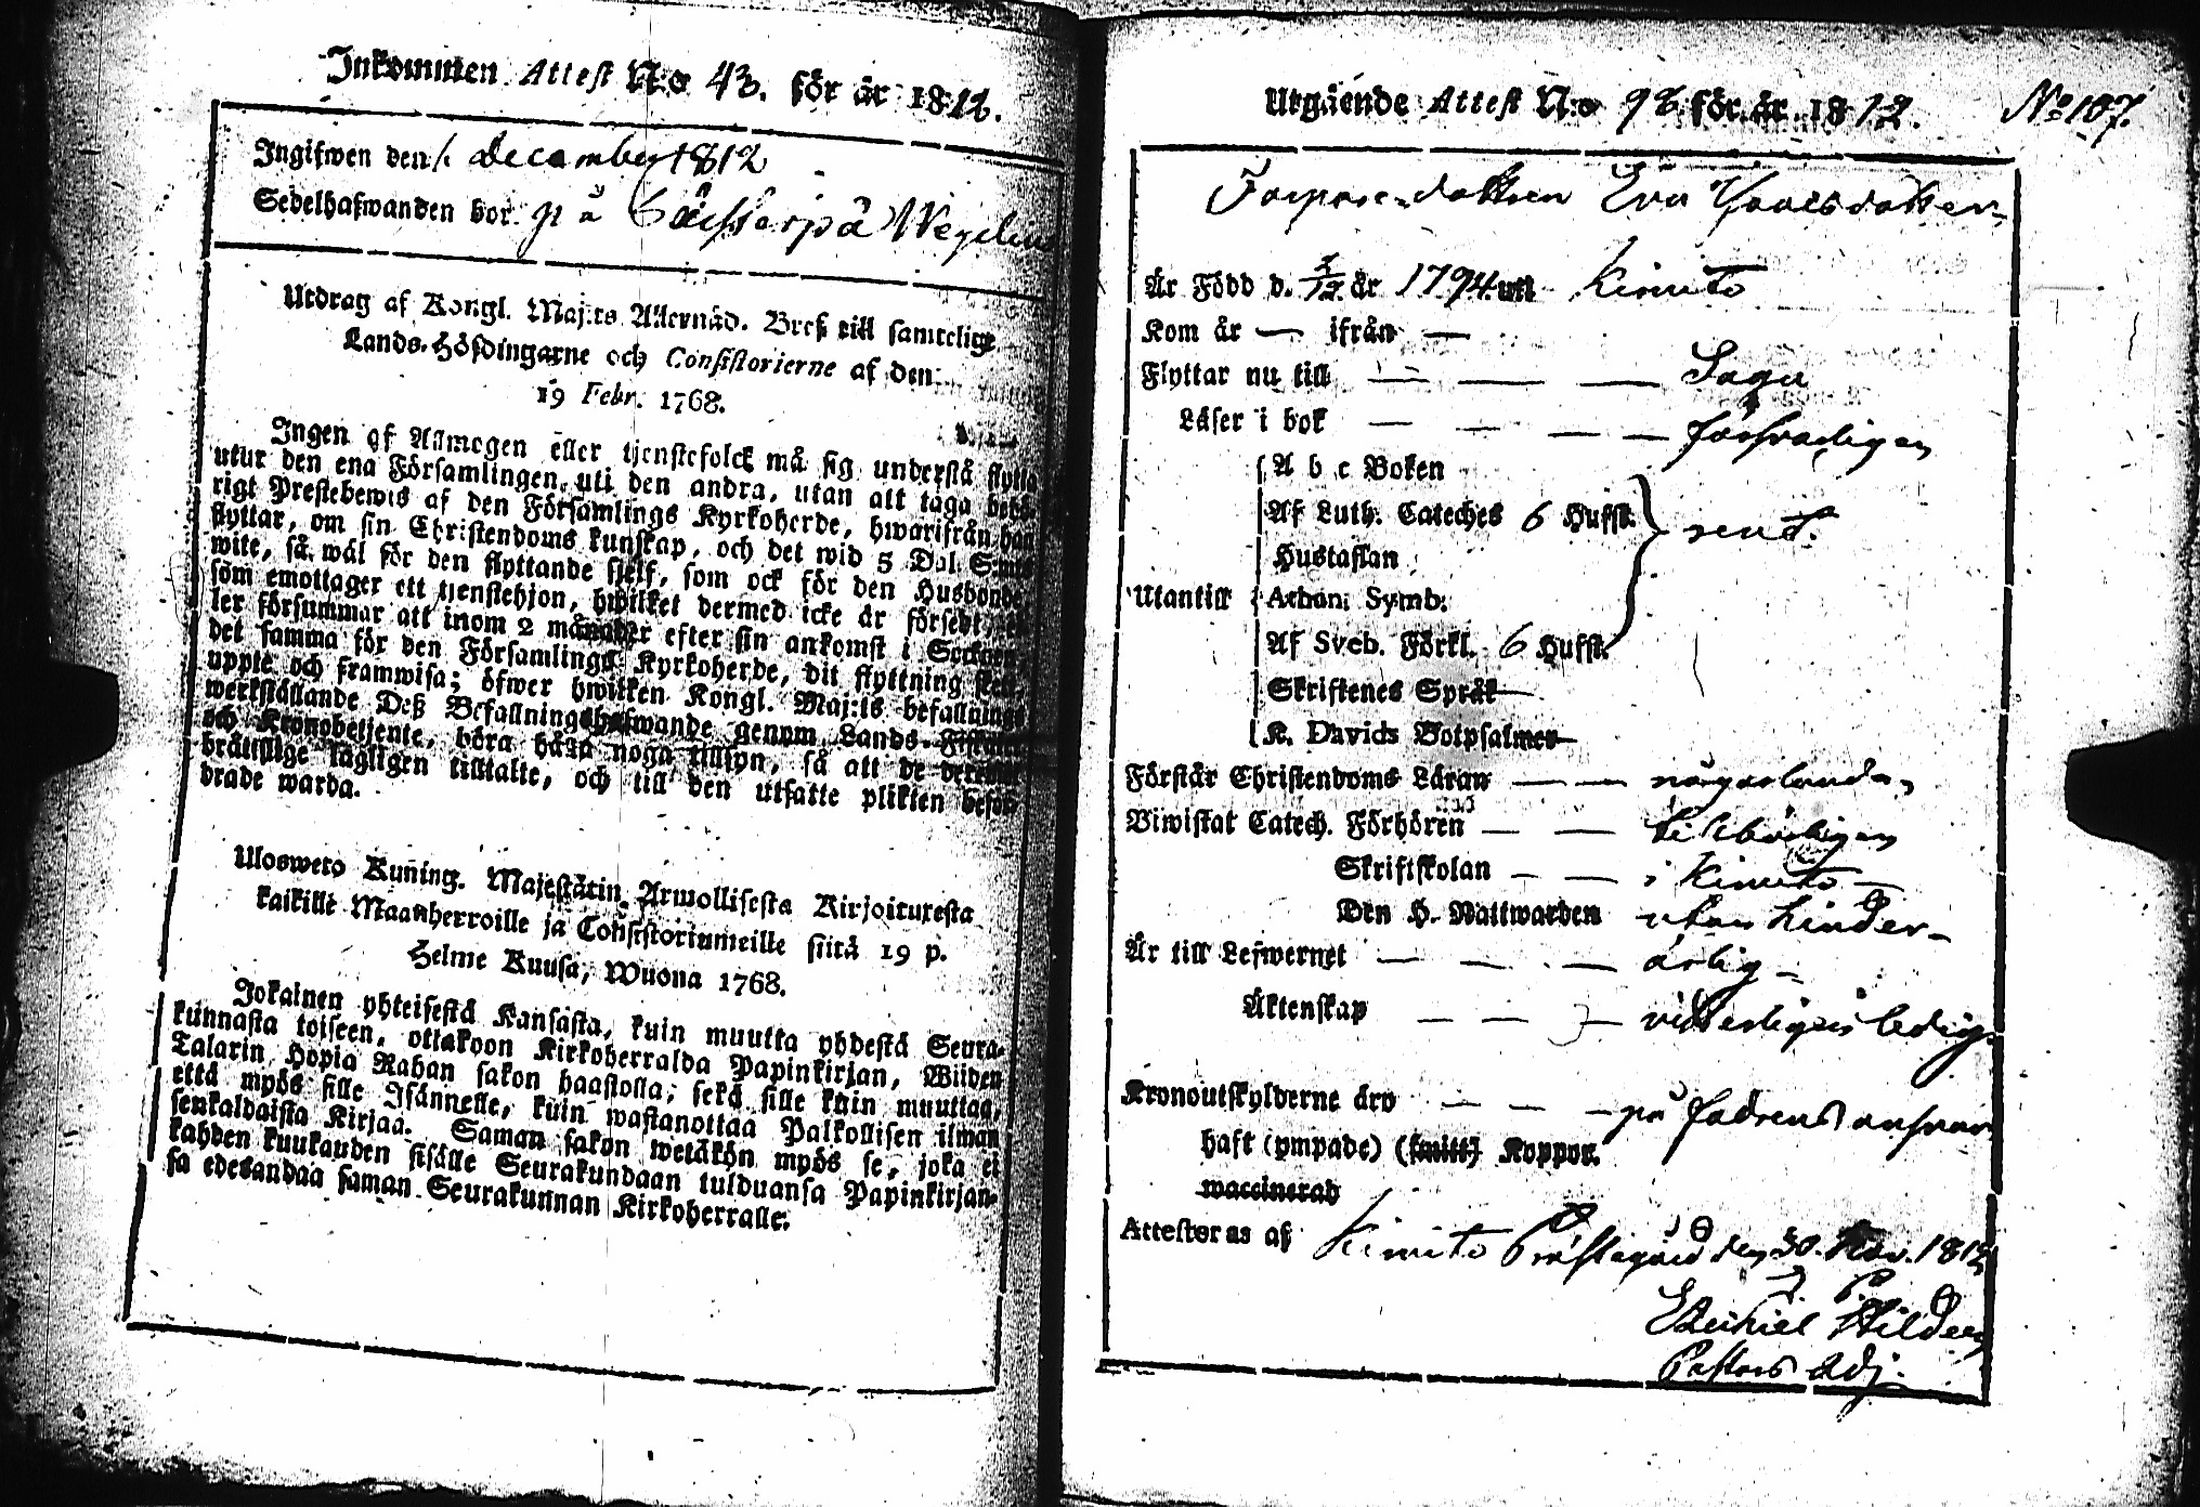 Inkommen Attest N:o 43. för år 1812.
Ingifwen den 1. december 1812
Sedelhafwanden bor på
Utdrag af Kongl. Maj:ts Allernåd. Bref till samtelige
Lands-Höfdingarne och Consistorierne af den
19 Febr. 1768.
Ingen af Allmogen eller tjenstefolck må sig understå flytta
utur den ena Församlingen, uti den andra, utan att taga behö-
rigt Prestebewis af den Församlings Kyrkoherde, hwarifrån han
flyttar, om sin Christendoms kunskap, och det wid 5 Dal. S:mts
wite, så wäl för den flyttande sjelf, som ock för den Husbonde,
som emottager ett tjenstehjon, hwilket dermed icke är försedt, el-
ler försummar att inom 2 månader efter sin ankomst i Socknen
det samma för den Församlings Kyrkoherde, dit flyttning sker,
uppte och framwisa; öfwer hwilken Kongl. Maj:ts befallnings
werkställande Deß Befallningshafwande genom Lands-Fiskaler
och Kronobetjente, böra hafa noga tillsyn, så att de
bråttslige lagligen tilltalte, och till den utsatte plikten befor-
drade warda.
Ulosweto Kuning. Majestätin Armollisesta Kirjoituresta
kaikille Maanherroille ja Consistoriumeille siitä 19 p.
Helme Kuusa, Wuona 1768.
Jokainen yhteisestä Kansasta, kuin muutta yhdestä Seura-
kunnasta toiseen, ottakoon Kirkoherralda Papinkirjan, Wiiden
Talarin Hopia Rahan sakon haastolla; sekä sille kuin muuttaa,
että myös sille Isännelle, kuin wastanottaa Palkollisen ilman
senkaldaista Kirjaa. Saman sakon wetäkön myös se, joka ei
kahden kuukauden sisälle Seurakundaan tulduansa Papinkirjan-
sa edesandaa saman Seurakunnan Kirkoherralle.
Utgående Attest N:o 98 för år 1812.
No 107.
dottren Eva
Är Född d. år 1794 uti Kimito
Kom år — ifrån —
Flyttar nu till — — — Sagu
Läser i bok — — — — försvarligen
A b c Boken
Af Luth. Cateches 6 Hufst.
rent.
Hustaflan
Utantill
Athan. Symb.
Af Sveb. Förkl. 6 Hufst.
Skriftenes Språk
K. Davids Botpsalmer
Förstår Christendoms Läran — — någorlunda
Biwistat Catech. Förhören — — behörigen
Skriftskolan — — i Kimito —
Den H. Nattwarden utan hinder —
Är till Lefwernet — — — ärlig —
Äktenskap — — — ledig
Kronoutskylderne äro — — — på fadrens ansvar
haft (ympade) (smitt) Koppor.
waccinerad
Attesteras af Kimito Prästegård den 30. Nov. 1812
Pastors Adj.